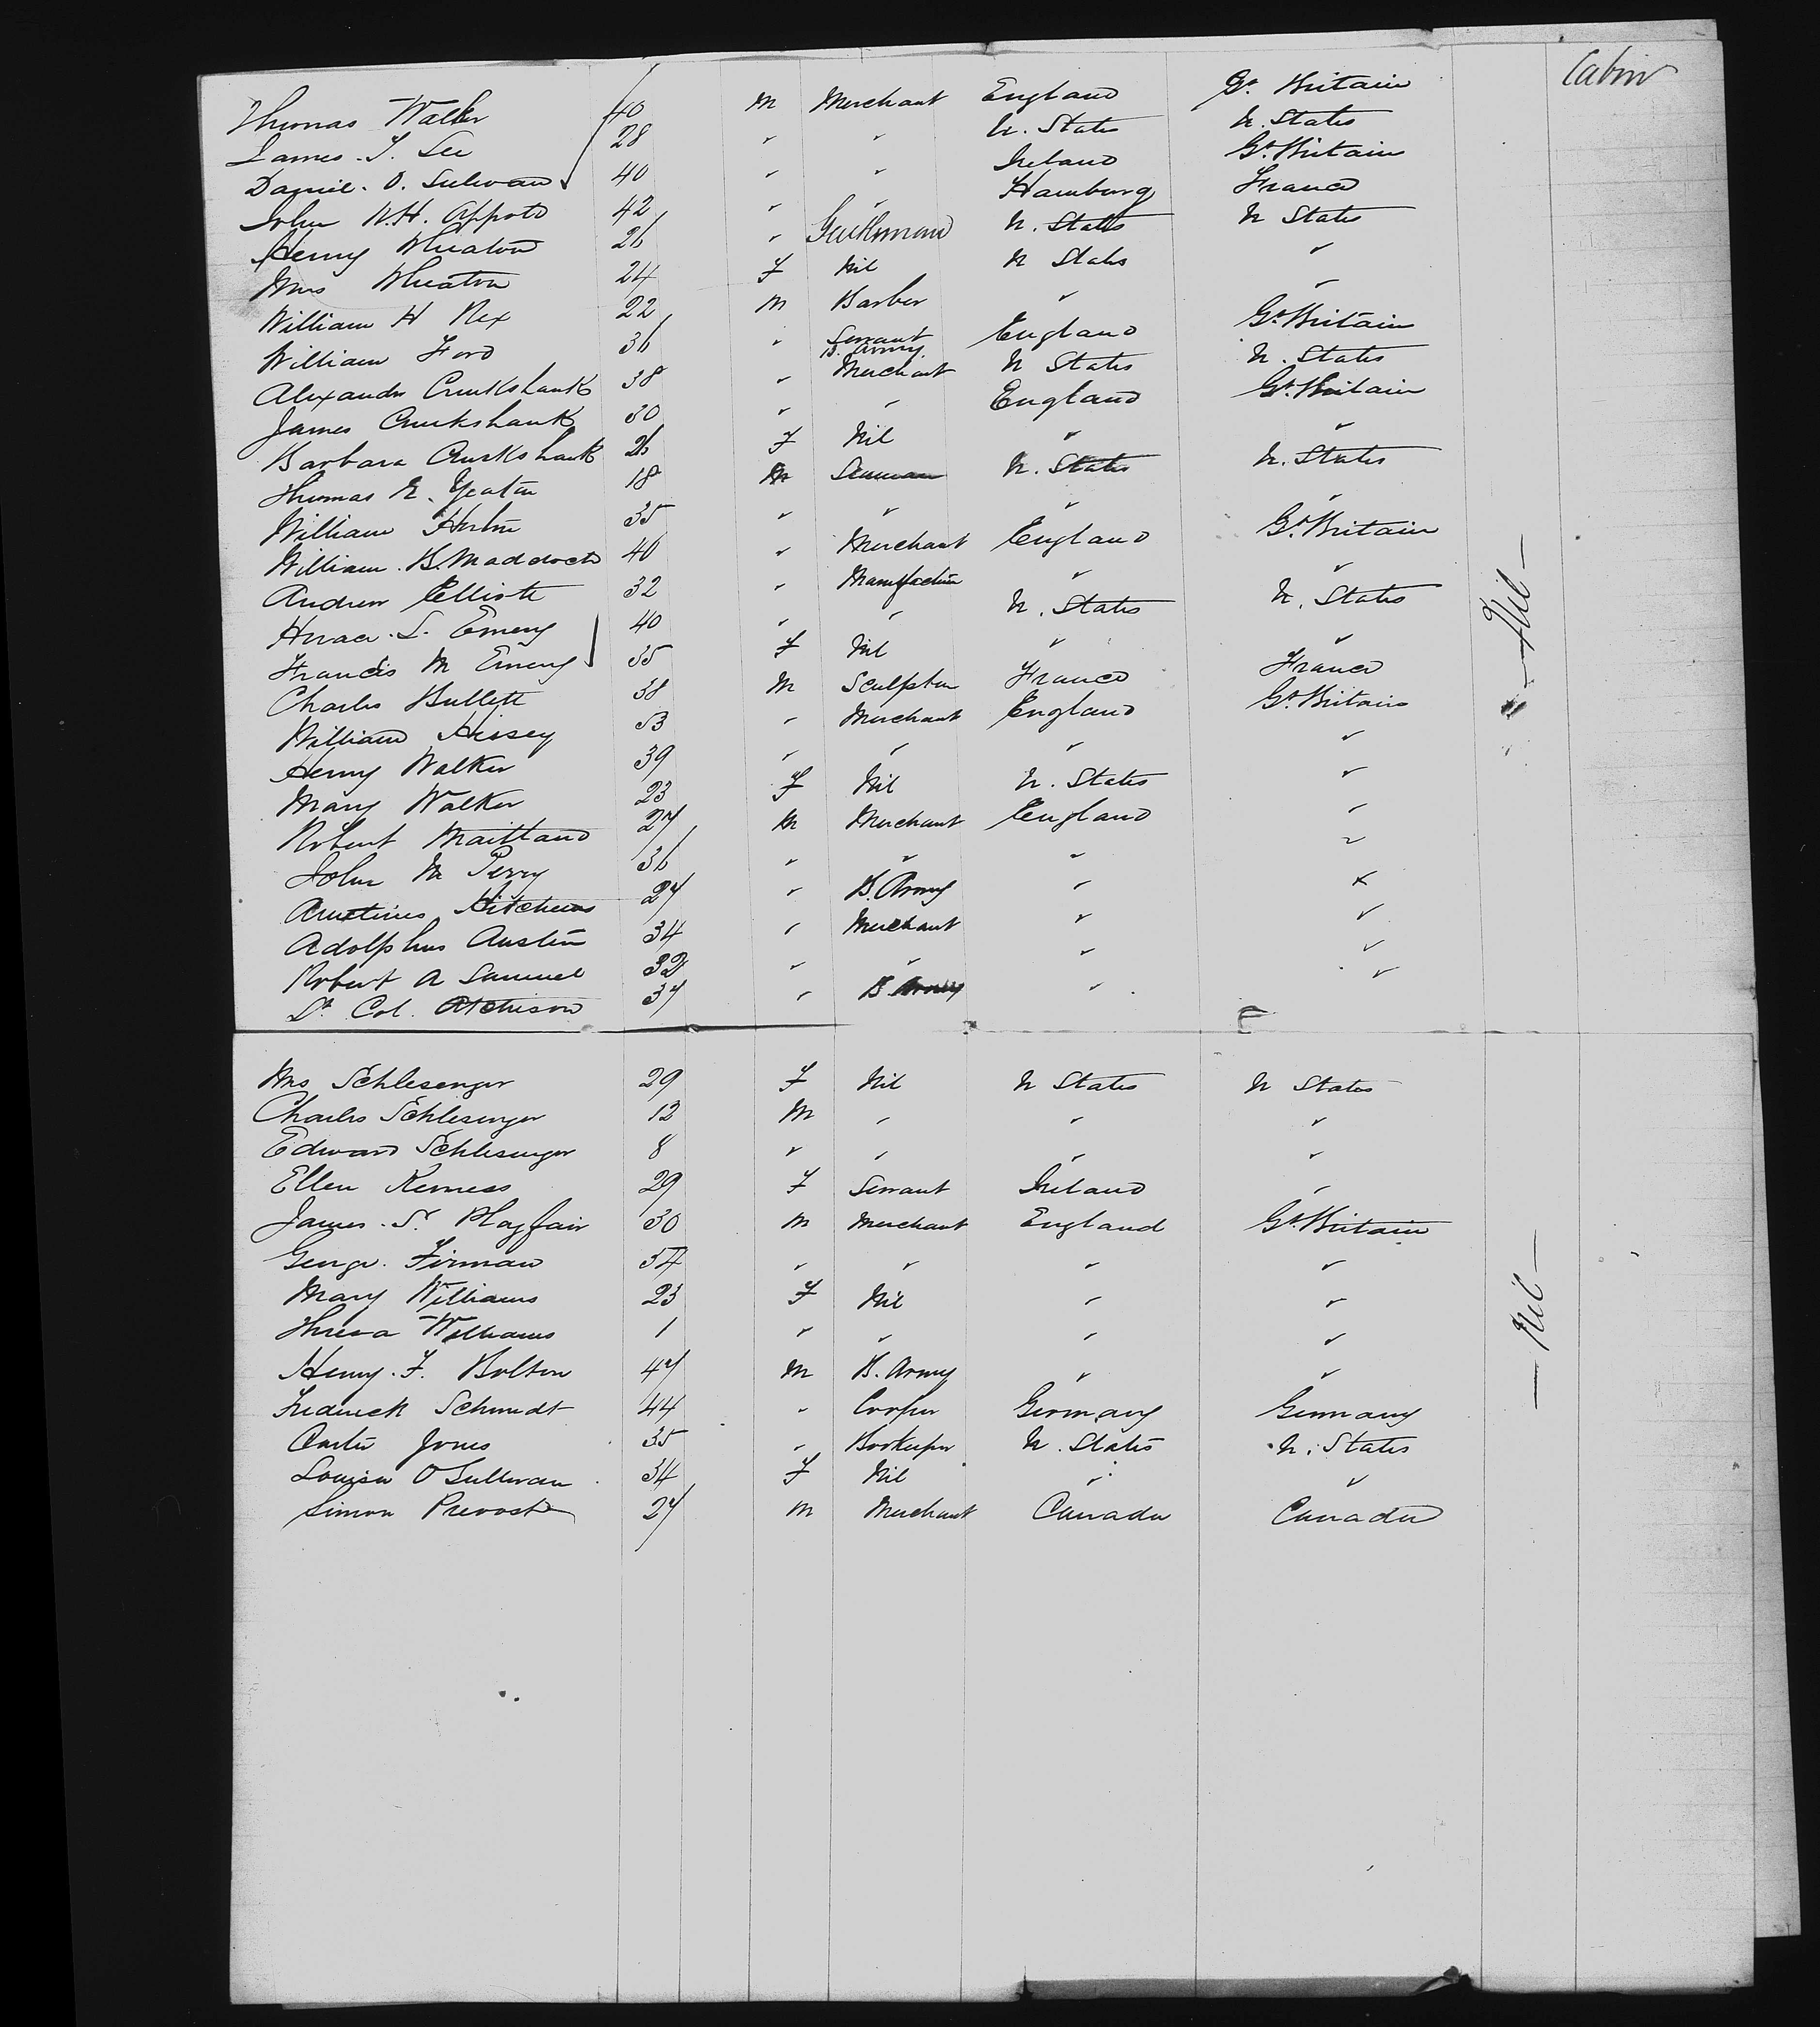 Cabin
Thomas Walker 40 M Merchant England Gt. Britain
James. T. Lee 28 " " U. States U. States
Daniel. O. Sulivan 40 " " Ireland Gt. Britain
John W.H. Appoto 42 " " Hamburg France
Henry Wheaton 26 " Gentleman U. States U States
Mrs Wheaton 24 F Nil U States "
William H Rex 22 M Barber " "
William Ford 36 " Servant B. Army England Gt. Britain
Alexander Cruikshank 38 " Merchant U States U. States
James Cruikshank 30 " " England Gt. Britain
Barbara Cruikshank 26 F Nil " "
Thomas E. Yeaton 18 M Seaman U. States U. States
William 35 " " " "
William. B. Maddock 40 " Merchant England Gt. Britain
Andrew Elliott 32 " Manufacturer " "
Horace. S. Emery 40 " " U. States U. States
Francis M Emery 35 F Nil " "
Charles Bullett 38 M Sculptor France France
William Hissey 53 " Merchant England Gt. Britain
Henry Walker 39 " " " "
Mary Walker 23 F Nil U. States "
Robert Maitland 27 M Merchant England "
John M Perry 36 " " " "
Hitchens 27 " B. Army " "
Adolphus Austin 34 " Merchant " "
Robert A Samuel 32 " " " "
Lt. Col. Atchison 37 " B Army " "
— Nil —
Mrs Schlesenger 29 F Nil U States U States
Charles Schlesinger 12 M " " "
Edward Schlesinger 8 " " " "
Ellen Kerness 29 F Servant Ireland "
James. S. Playfair 30 M Merchant England Gt. Britain
George. Firman 54 " " " "
Mary Williams 23 F Nil " "
Thresa Williams 1 " " " "
Henry. F. Bolton 47 M B. Army " "
Frederick Schmidt 44 " Cooper Germany Germany
Carter Jones 35 " Bookeeper U. States U. States
Louisa O Sullivan 34 F Nil " "
Simon Prevost 27 M Merchant Canada Canada
— Nil —